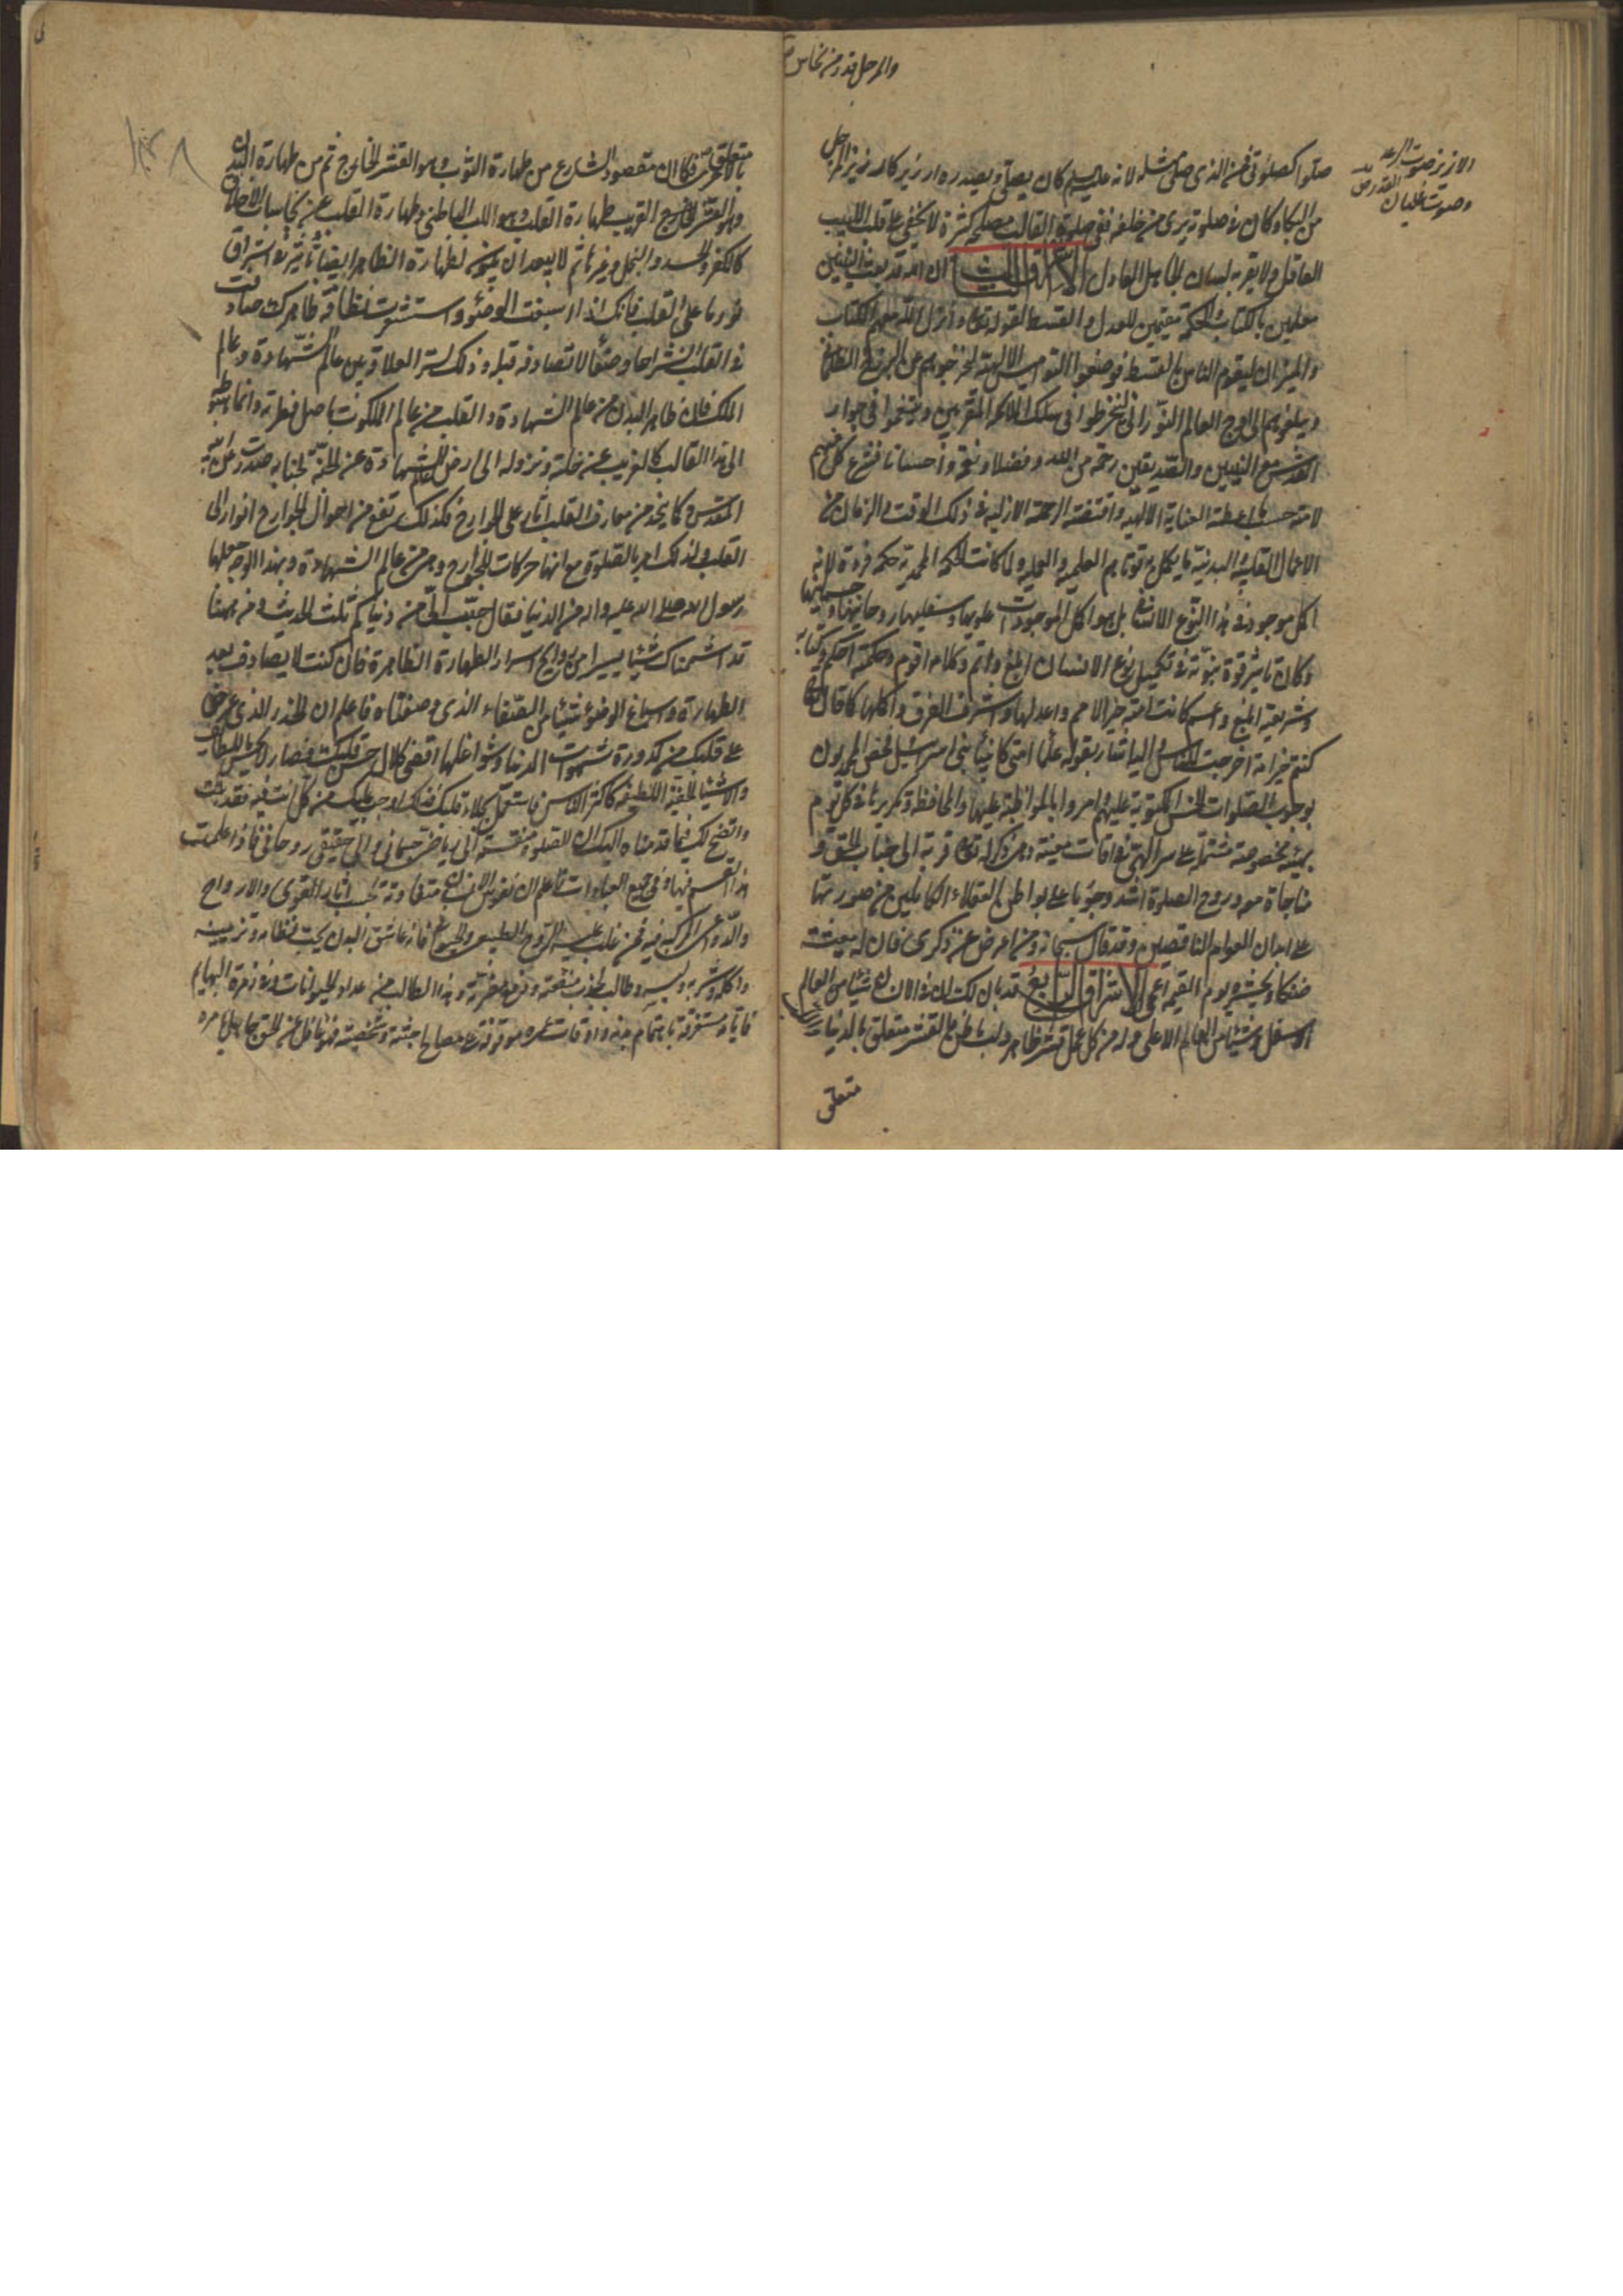 والمرجل قدر من نحاس
الازيز صوت الرعد
وصوت غليان القدر
صلوا كصلوتي فمن الذي صلى مثله لانه عليه السلم كان يصلي وبصدره ازيز كازيز المرجل
من البكاء وكان في صلوته يرى من خلفه ففي صلوة القالب مصلحة كثيرة لا تخفى على قلب اللبيب
العاقل ولا يقر به لسان الجاهل العادل الاشراق الثالث ان الله قد بعث النبيين
معلمين بالكتاب والحكمة مقيمين للعدل والقسط لقوله تعالى وانزل الله معهم الكتاب
والميزان ليقوم الناس بالقسط فوضعوا النواميس الالهية لتخرجوهم عن البرزخ الظلماني
ويبلغوهم الى اوج العالم النوراني لينخرطوا في سلك الملائكة المقربين وينتهوا في جوار
القدس مع النبيين والصديقين رحمة من الله وفضلا ونعمة واحسانا فشرع كل منهم
لامته حسب ما اعطته العناية الالهية واقتضته الرحمة الازلية في ذلك الوقت والزمان من
الاعمال القلبية والبدنية ما يكمل به قوتاهم العلمية والعملية ولما كانت الحكمة المحمدية حكمة فردة لانه
اكمل موجود في هذا النوع الانساني بل هو اكمل الموجودات علويها وسفليها روحانيها وجسمانيها
وكان تاثير قوة نبوته في تكميل نوع الانسان ابلغ واتم وكلامه اقوم وحكمته احكم وكتابه
وشريعته ابلغ واعم كانت امته خير الامم واعدلها واشرف الفرق واكملها كما قال تعالى
كنتم خير امة اخرجت للناس واليه اشار بقوله علماء امتي كانبياء بني اسرائيل فخص المحمديون
بوجوب الصلوات الخمس المكتوبة عليهم وامروا بالمواظبة عليها والمحافظة وتكريرها في كل يوم
بهيئة مخصوصة مشتملة على سر الهي في اوقات معينة وهي ذكر لله تعالى قربة الى جناب الحق و
مناجاة معه وروح الصلوة اشد وجوبا على بواطن العقلاء الكاملين من صورتها
على ابدان العوام الناقصين وقد قال سبحانه ومن اعرض عن ذكري فان له معيشة
ضنكا ونحشره يوم القيمة اعمى الاشراق الرابع قد بان لك ان في الانسان شيئا من العالم
الاسفل وشيئا من العالم الاعلى وله من كل عمل قشر ظاهر ولب باطن فالقشر متعلق بالدنيا واللب
متعلق
١٣٨
متعلق بالاخرة فكان مقصود الشارع من طهارة الثوب وهو القشر الخارج ثم من طهارة البدن
وهو القشر الخارج القريب طهارة القلب وهو اللب الباطني وطهارة القلب عن نجاسات الاخلاق
كالكفر والحسد والبخل وغيرها ثم لا يبعد ان يكون لطهارة الظاهر ايضا تاثير في اشراق
نورها على القلب فانك اذا اسبغت الوضوء واستشعرت نظافة ظاهرك صادفت
في القلب انشراحا وصفاء لا تصادفه قبله وذلك لسر العلاقة بين عالم الشهادة وعالم
الملكوت فان ظاهر البدن من عالم الشهادة والقلب من عالم الملكوت باصل فطرته وانما هبوطه
الى هذا القالب كالغريب عن خلته ونزوله الى ارض الشهادة عن الجنة
المقدس وكما ينحدر من معارف القلب اثار على الجوارح فكذلك يرتفع من احوال الجوارح انوار الى
القلب ولذلك امر بالصلوة مع انها حركات للجوارح وهي من عالم الشهادة وبهذا الوجه جعلها
رسول الله صلى الله عليه واله من الدنيا فقال حبب الي من دنياكم ثلث الحديث ومن ههنا
قد اشممناك شيئا يسيرا من روايح اسرار الطهارة الظاهرة فان كنت لا تصادف بعد
الطهارة واسباغ الوضوء شيئا من الصفاء الذي وصفناه فاعلم ان الخدر الذي عرض
على قلبك من كدورة شهوات الدنيا وشواغلها اقتضى كلال حس قلبك فصار لا يحس باللطايف
والاشياء الخفية اللطيفة كاكثر الناس فاشتغل بجلاء قلبك فذلك اوجب عليك من كل ما انت فيه فقد ثبت
واتضح لك فيما قدمناه اليك ان الصلوة منقسمة الى رياضي جسماني والى حقيقي روحاني فاذا علمت
هذا التقسيم فيها وفي جميع العبادات فاعلم ان نفوس الانسان متفاوتة بحسب اثار القوى والارواح
والدواعي المركبة فيه فمن غلب عليه الروح الطبيعي والحيواني فانه عاشق البدن يحب نظامه وتزيينه
واكله وشربه ولبسه وطالب لجذب منفعته ودفع مضرته وهذا الطالب من عداد الحيوانات وفي زمرة البهايم
فايامه مستغرقة باهتمام بدنه واوقات عمره موقوفة على مصالح جثته وشخصيته فهو غافل عن الحق جاهل بامره